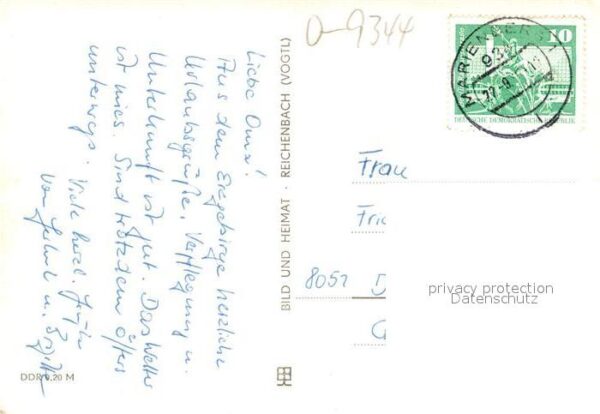 Liebe Oma!
Aus dem Erzgebirge herzliche
Urlaubsgrüße. Verpflegung u.
Unterkunft ist gut. Das Wetter
ist mies. Sind trotzdem öfters
unterwegs. Viele herzl. Grüße
von u. Brigitte
DDR 0,20 M
BILD UND HEIMAT · REICHENBACH (VOGTL)
O-9344
MARIENBERG 1
10
DEUTSCHE DEMOKRATISCHE REPUBLIK
Frau
8051 D
privacy protection
Datenschutz